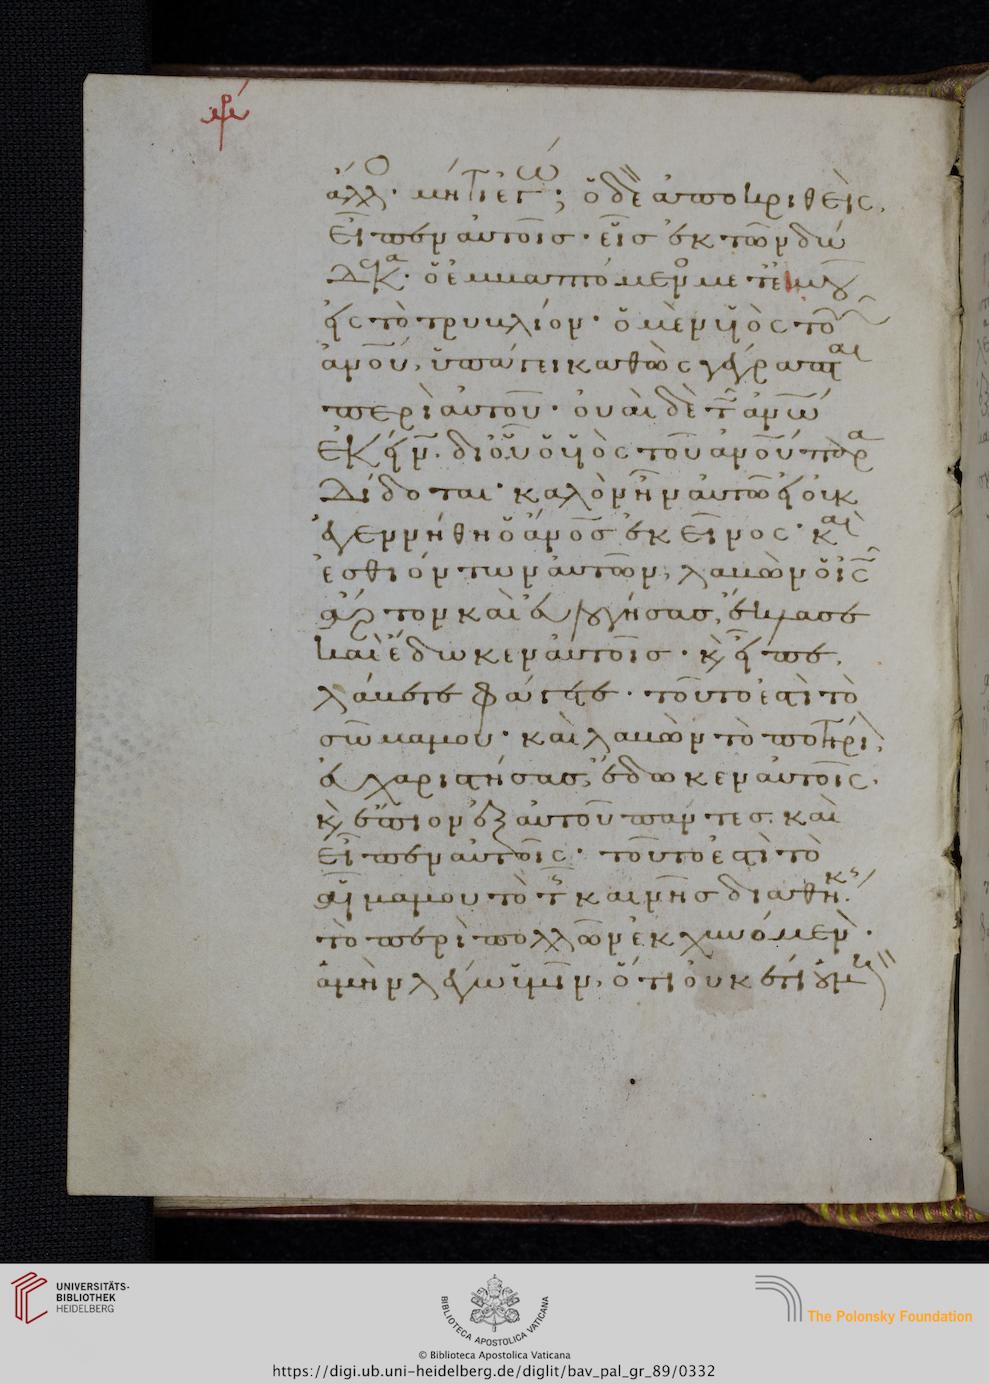 ψ´
ἄλλο· μήτι ἐγώ; ὁ δὲ ἀποκριθεὶς,
εἶπεν αὐτοῖς· εἷς ἐκ τῶν δώ
δεκα· ὁ ἐμβαπτόμενος μετ ἐμοῦ
εἰς τὸ τρυβλίον· ὁ μὲν υἱὸς τοῦ
ἀνου, ὑπάγει καθὼς γέγραπται
περὶ αὐτοῦ· οὐαὶ δὲ τῷ ἀνω
ἐκείνω· δι οὗ ὁ υἱὸς τοῦ ἀνου παρα
δίδοται· καλὸν ἦν αὐτῶ εἰ οὐκ
ἐγεννήθη ὁ ἄνος ἐκεῖνος· καὶ
ἐσθιόντων αὐτῶν, λαβὼν ὁ ις
ἄρτον καὶ εὐλογήσας, ἔκλασε
καὶ ἔδωκεν αὐτοῖς· κ εἶπε,
λάβετε φάγετε· τοῦτό ἐστὶ τὸ
σῶμα μου· καὶ λαβὼν τὸ ποτήρι,
εὐχαριστήσας, ἔδωκεν αὐτοῖς·
κ ἔπιον ἐξ αὐτοῦ πάντες· καὶ
εἶπεν αὐτοῖς· τοῦτό ἐστὶ τὸ
αἷμα μου τὸ τῆς καινῆς διαθηκς·
τὸ περὶ πολλῶν ἐκχυνόμεν·
ἀμὴν λέγω ὑμῖν, ὅτι οὐκέτι οὐ μὴ
UNIVERSITÄTS-
BIBLIOTHEK
HEIDELBERG
BIBLIOTECA APOSTOLICA VATICANA
The Polonsky Foundation
© Biblioteca Apostolica Vaticana
https://digi.ub.uni-heidelberg.de/diglit/bav_pal_gr_89/0332